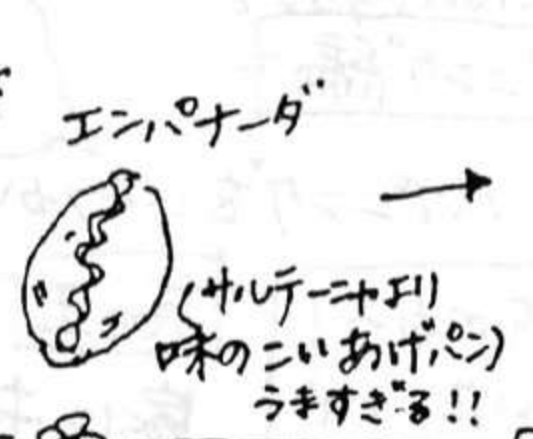 エンパナーダ
(サルテーニャより
味のこいあげパン)
うますぎる!!